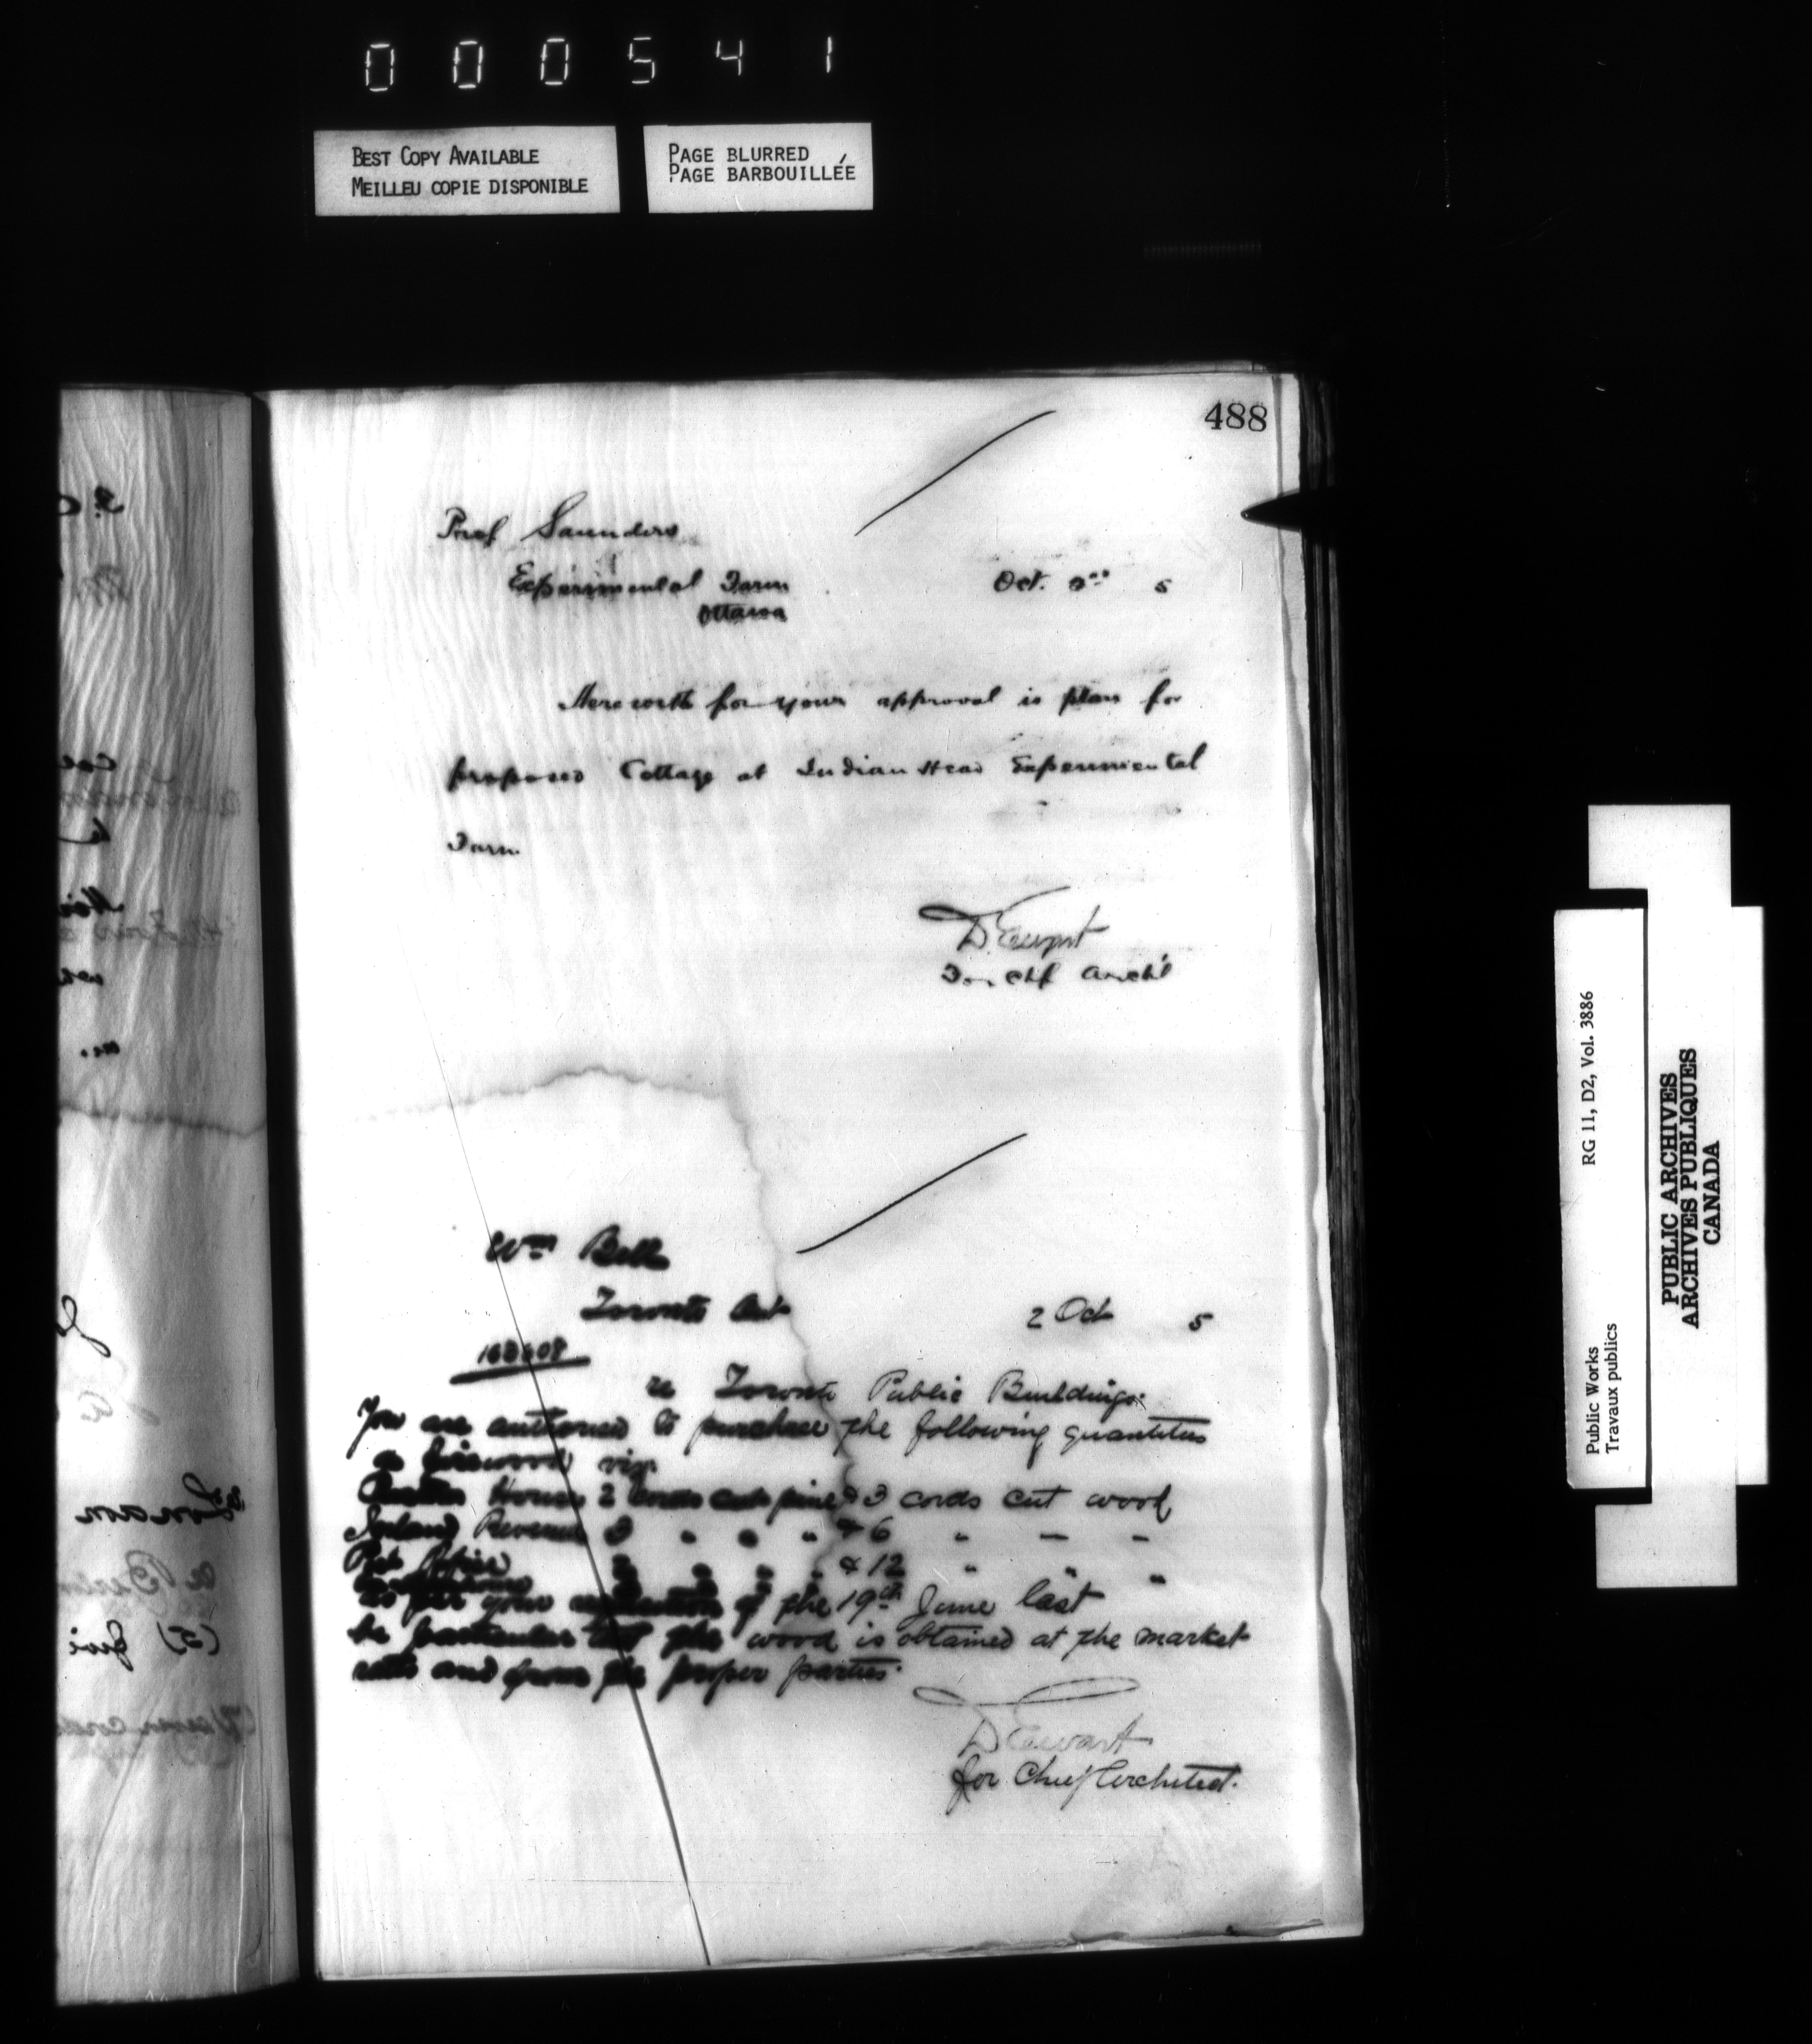 000541
BEST COPY AVAILABLE
MEILLEU COPIE DISPONIBLE
PAGE BLURRED
PAGE BARBOUILLÉE
488
Prof Saunders
Experimental Farm
Ottawa
Oct. 2nd 5
Herewith for your approval is plan for
proposed Cottage at Indian Head Experimental
Farm
D. Ewart
For Chf Archt
Wm Bell
Toronto Ont
2 Oct 5
re Toronto Public Buildings.
You are authorised to purchase the following quantities
firewood viz.
House 2 cords cut pine & 3 cords cut wood
Inland Revenue 3 " " " & 6 " — —
Post Office " " " & 12 " " "
as per your of the 19th June last
be particular that the wood is obtained at the market
rate and from the proper parties.
D Ewart
for Chief Architect.
Public Works
Travaux publics
RG 11, D2, Vol. 3886
PUBLIC ARCHIVES
ARCHIVES PUBLIQUES
CANADA